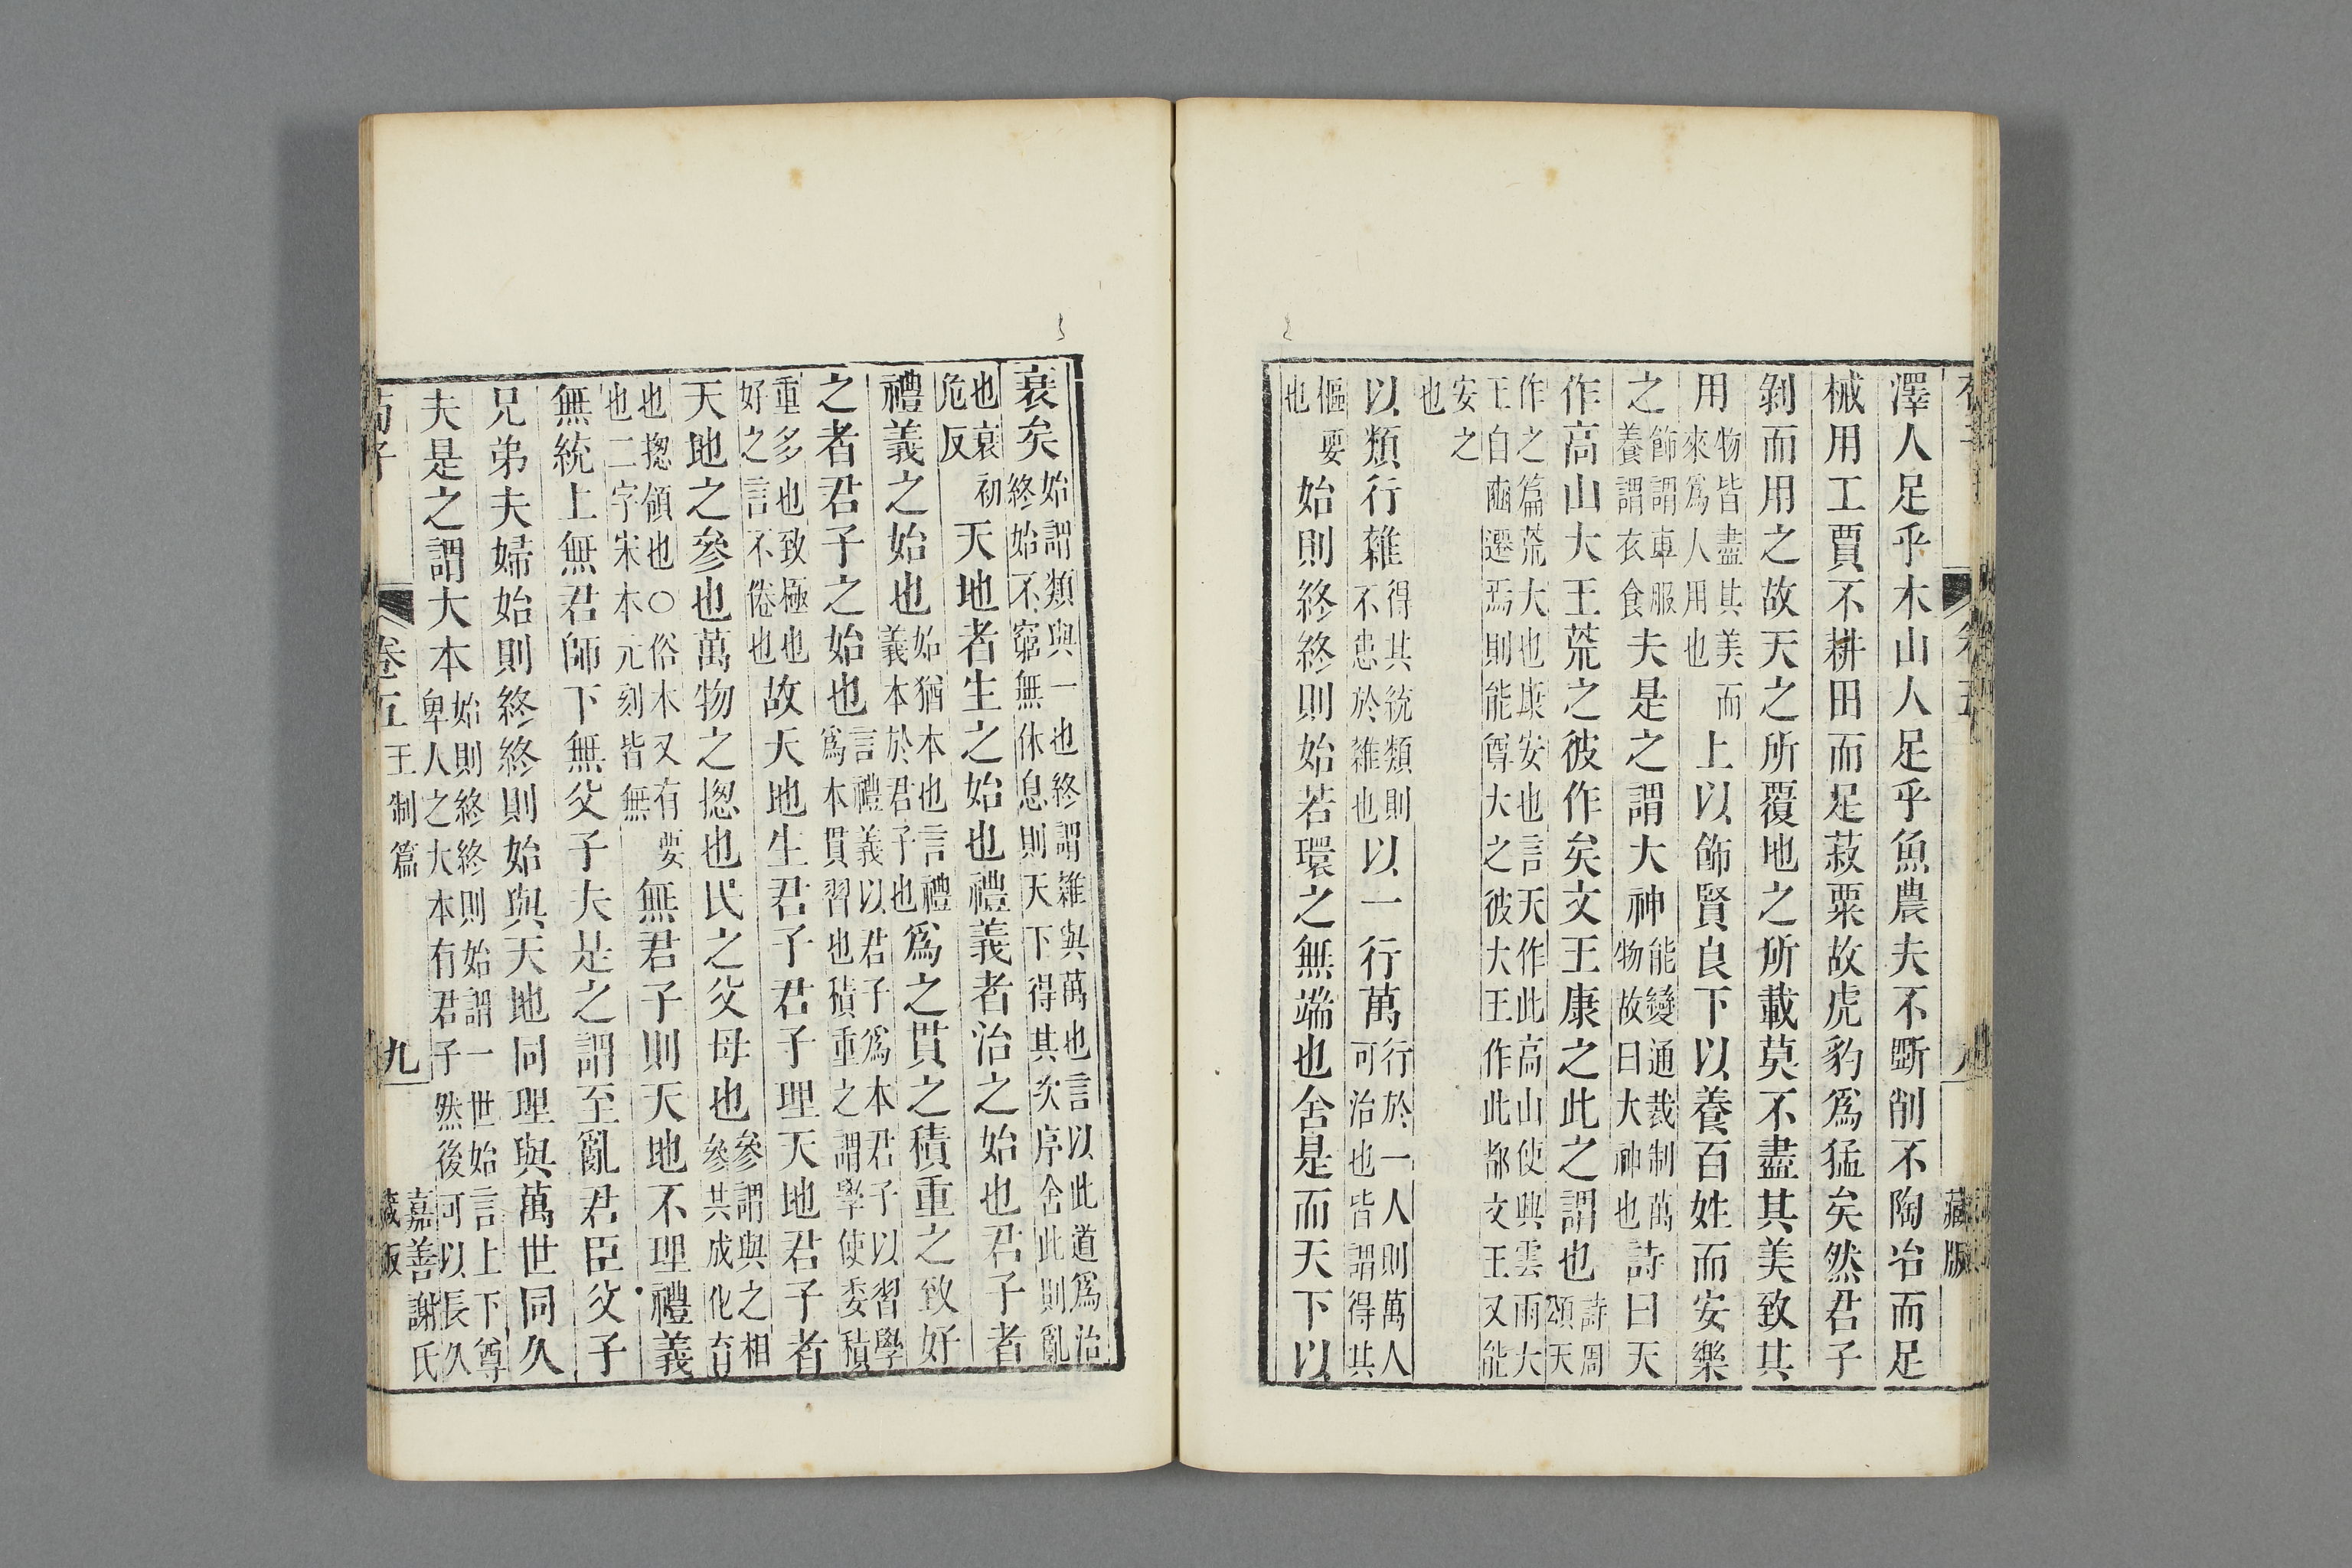 澤人足乎木山人足乎魚農夫不斲削不陶冶而足
械用工賈不耕田而足菽粟故虎豹爲猛矣然君子
剝而用之故天之所覆地之所載莫不盡其美致其
用物皆盡其美而來爲人用也上以飾賢良下以養百姓而安樂
之飾謂車服養謂衣食夫是之謂大神能變通裁制萬物故曰大神也詩曰天
作高山大王荒之彼作矣文王康之此之謂也詩周頌天
作之篇荒大也康安也言天作此高山使興雲雨大王自豳遷焉則能尊大之彼大王作此都文王又能
安之也
以類行雜得其統類則不患於雜也以一行萬行於一人則萬人可治也皆謂得其
樞要也始則終終則始若環之無端也舍是而天下以
衰矣始謂類與一也終謂雜與萬也言以此道爲治終始不窮無休息則天下得其次序舍此則亂
也衰初危反天地者生之始也禮義者治之始也君子者
禮義之始也始猶本也言禮義本於君子也爲之貫之積重之致好
之者君子之始也言禮義以君子爲本君子以習學爲本貫習也積重之謂學使委積
重多也致極也好之言不倦也故天地生君子君子理天地君子者
天地之參也萬物之揔也民之父母也參謂與之相參共成化育
也揔領也○俗木又有要也二字宋本元刻皆無無君子則天地不理禮義
無統上無君師下無父子夫是之謂至亂君臣父子
兄弟夫婦始則終終則始與天地同理與萬世同久
夫是之謂大本始則終終則始謂一世始言上下尊卑人之大本有君子然後可以長久
荀子 卷五 王制篇 九 嘉善謝氏藏版